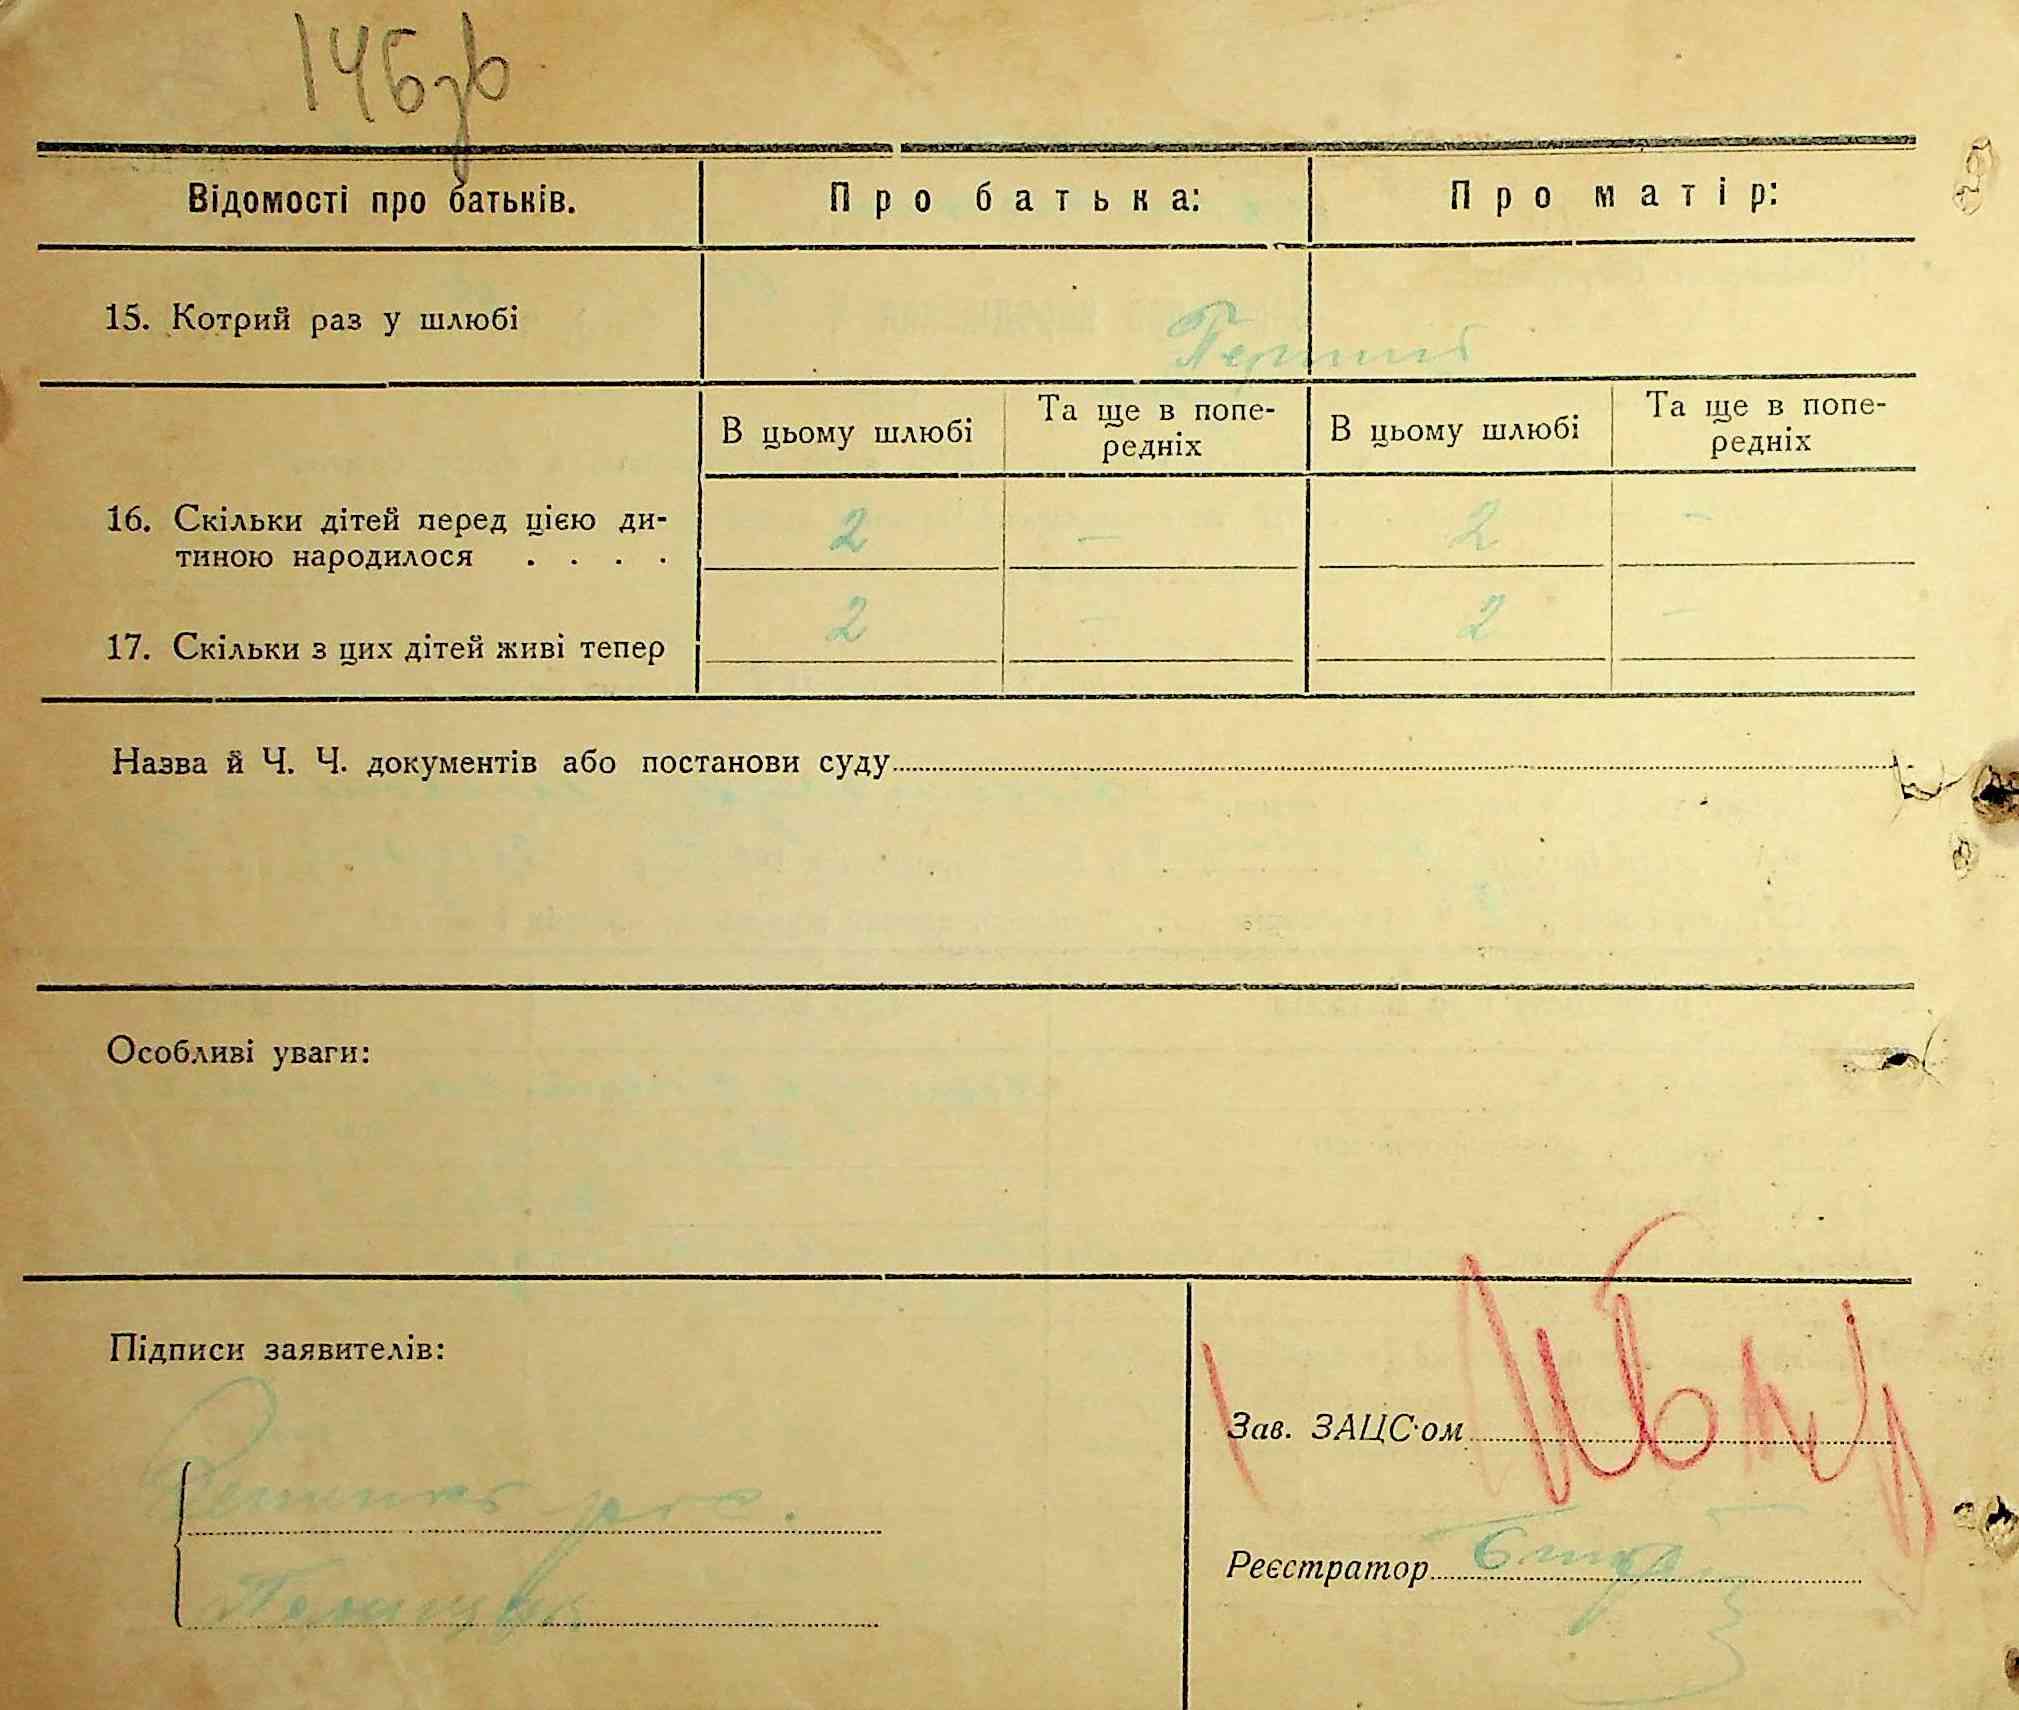 146зв
Відомості про батьків. Про батька: Про матір:
15. Котрий раз у шлюбі Перший
В цьому шлюбі Та ще в попе-редніх В цьому шлюбі Та ще в попе-редніх
16. Скільки дітей перед цією ди-
тиною народилося . . . . 2 – 2 –
17. Скільки з цих дітей живі тепер 2 – 2 –
Назва й Ч. Ч. документів або постанови суду
Особливі уваги:
Підписи заявителів:
Зав. ЗАЦС·ом
Реєстратор